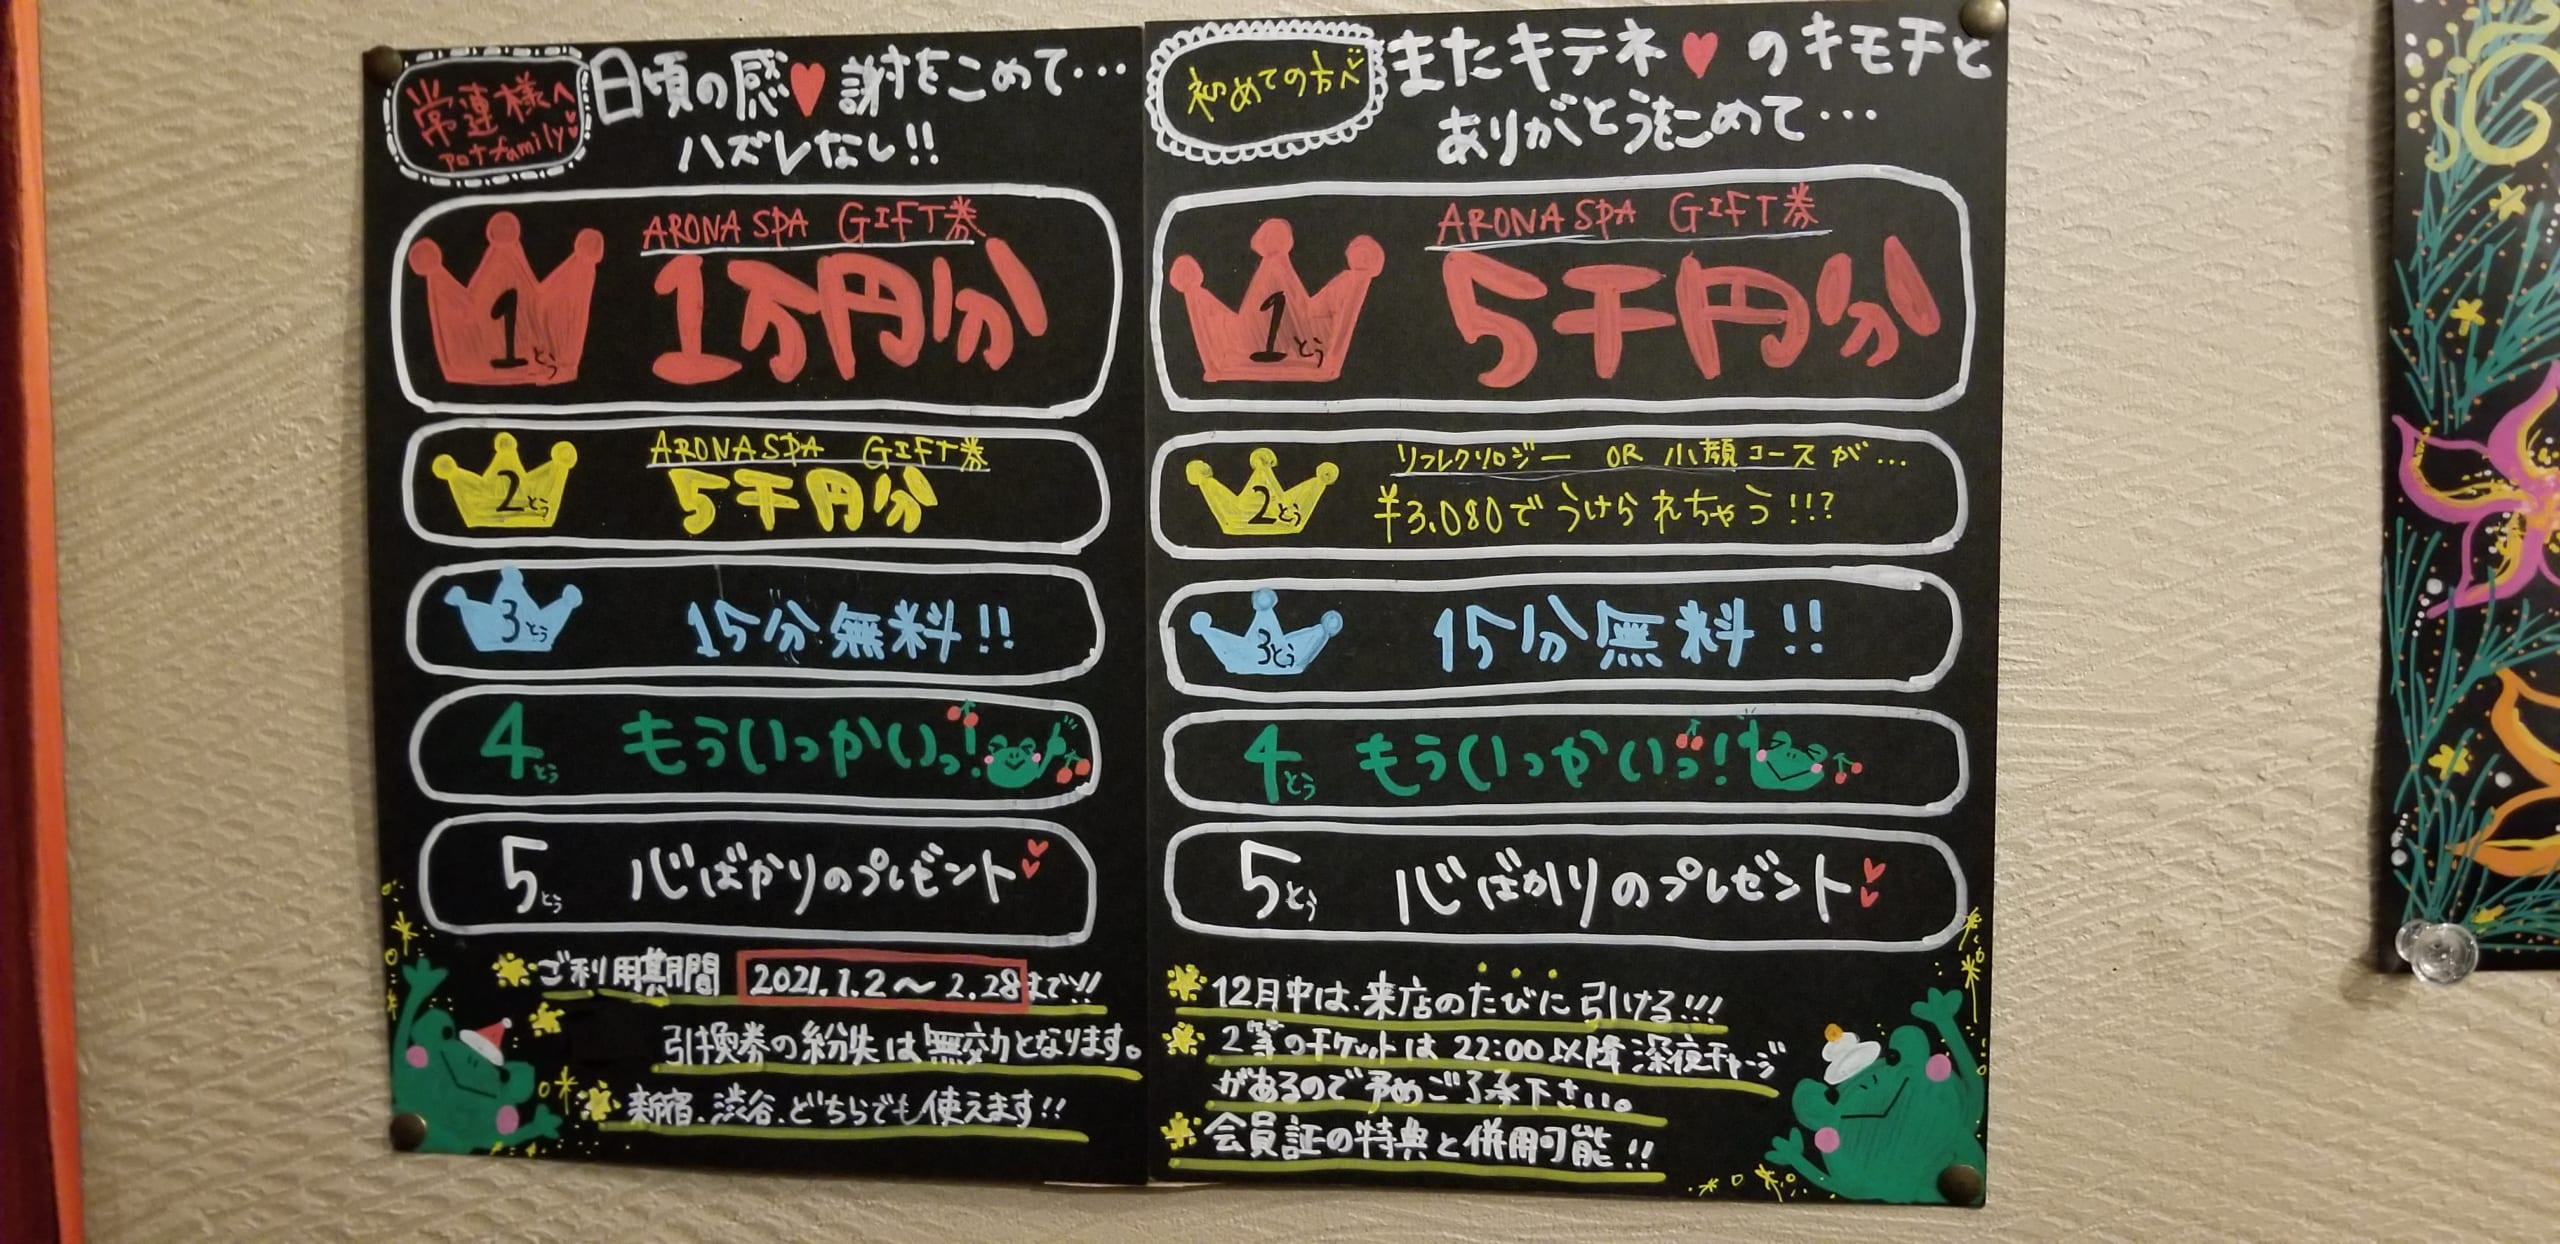 常連様へ
pot family
日頃の感謝をこめて…
ハズレなし!!
ARONA SPA GIFT券
1とう 1万円分
ARONA SPA GIFT券
2とう 5千円分
3とう 15分無料!!
4とう もういっかいっ!
5とう 心ばかりのプレゼント
ご利用期間 2021.1.2〜2.28まで!!
引換券の紛失は無効となります。
新宿.渋谷.どちらでも使えます!!
初めての方へ
またキテネ♥のキモチと
ありがとうをこめて…
ARONA SPA GIFT券
1とう 5千円分
リフレクソロジー OR 小顔コースが…
2とう ¥3,080でうけられちゃう!!?
3とう 15分無料!!
4とう もういっかいっ!
5とう 心ばかりのプレゼント
12月中は.来店のたびに引ける!!!
2等のチケットは22:00以降深夜チャージ
があるので予めご了承下さい。
会員証の特典と併用可能!!